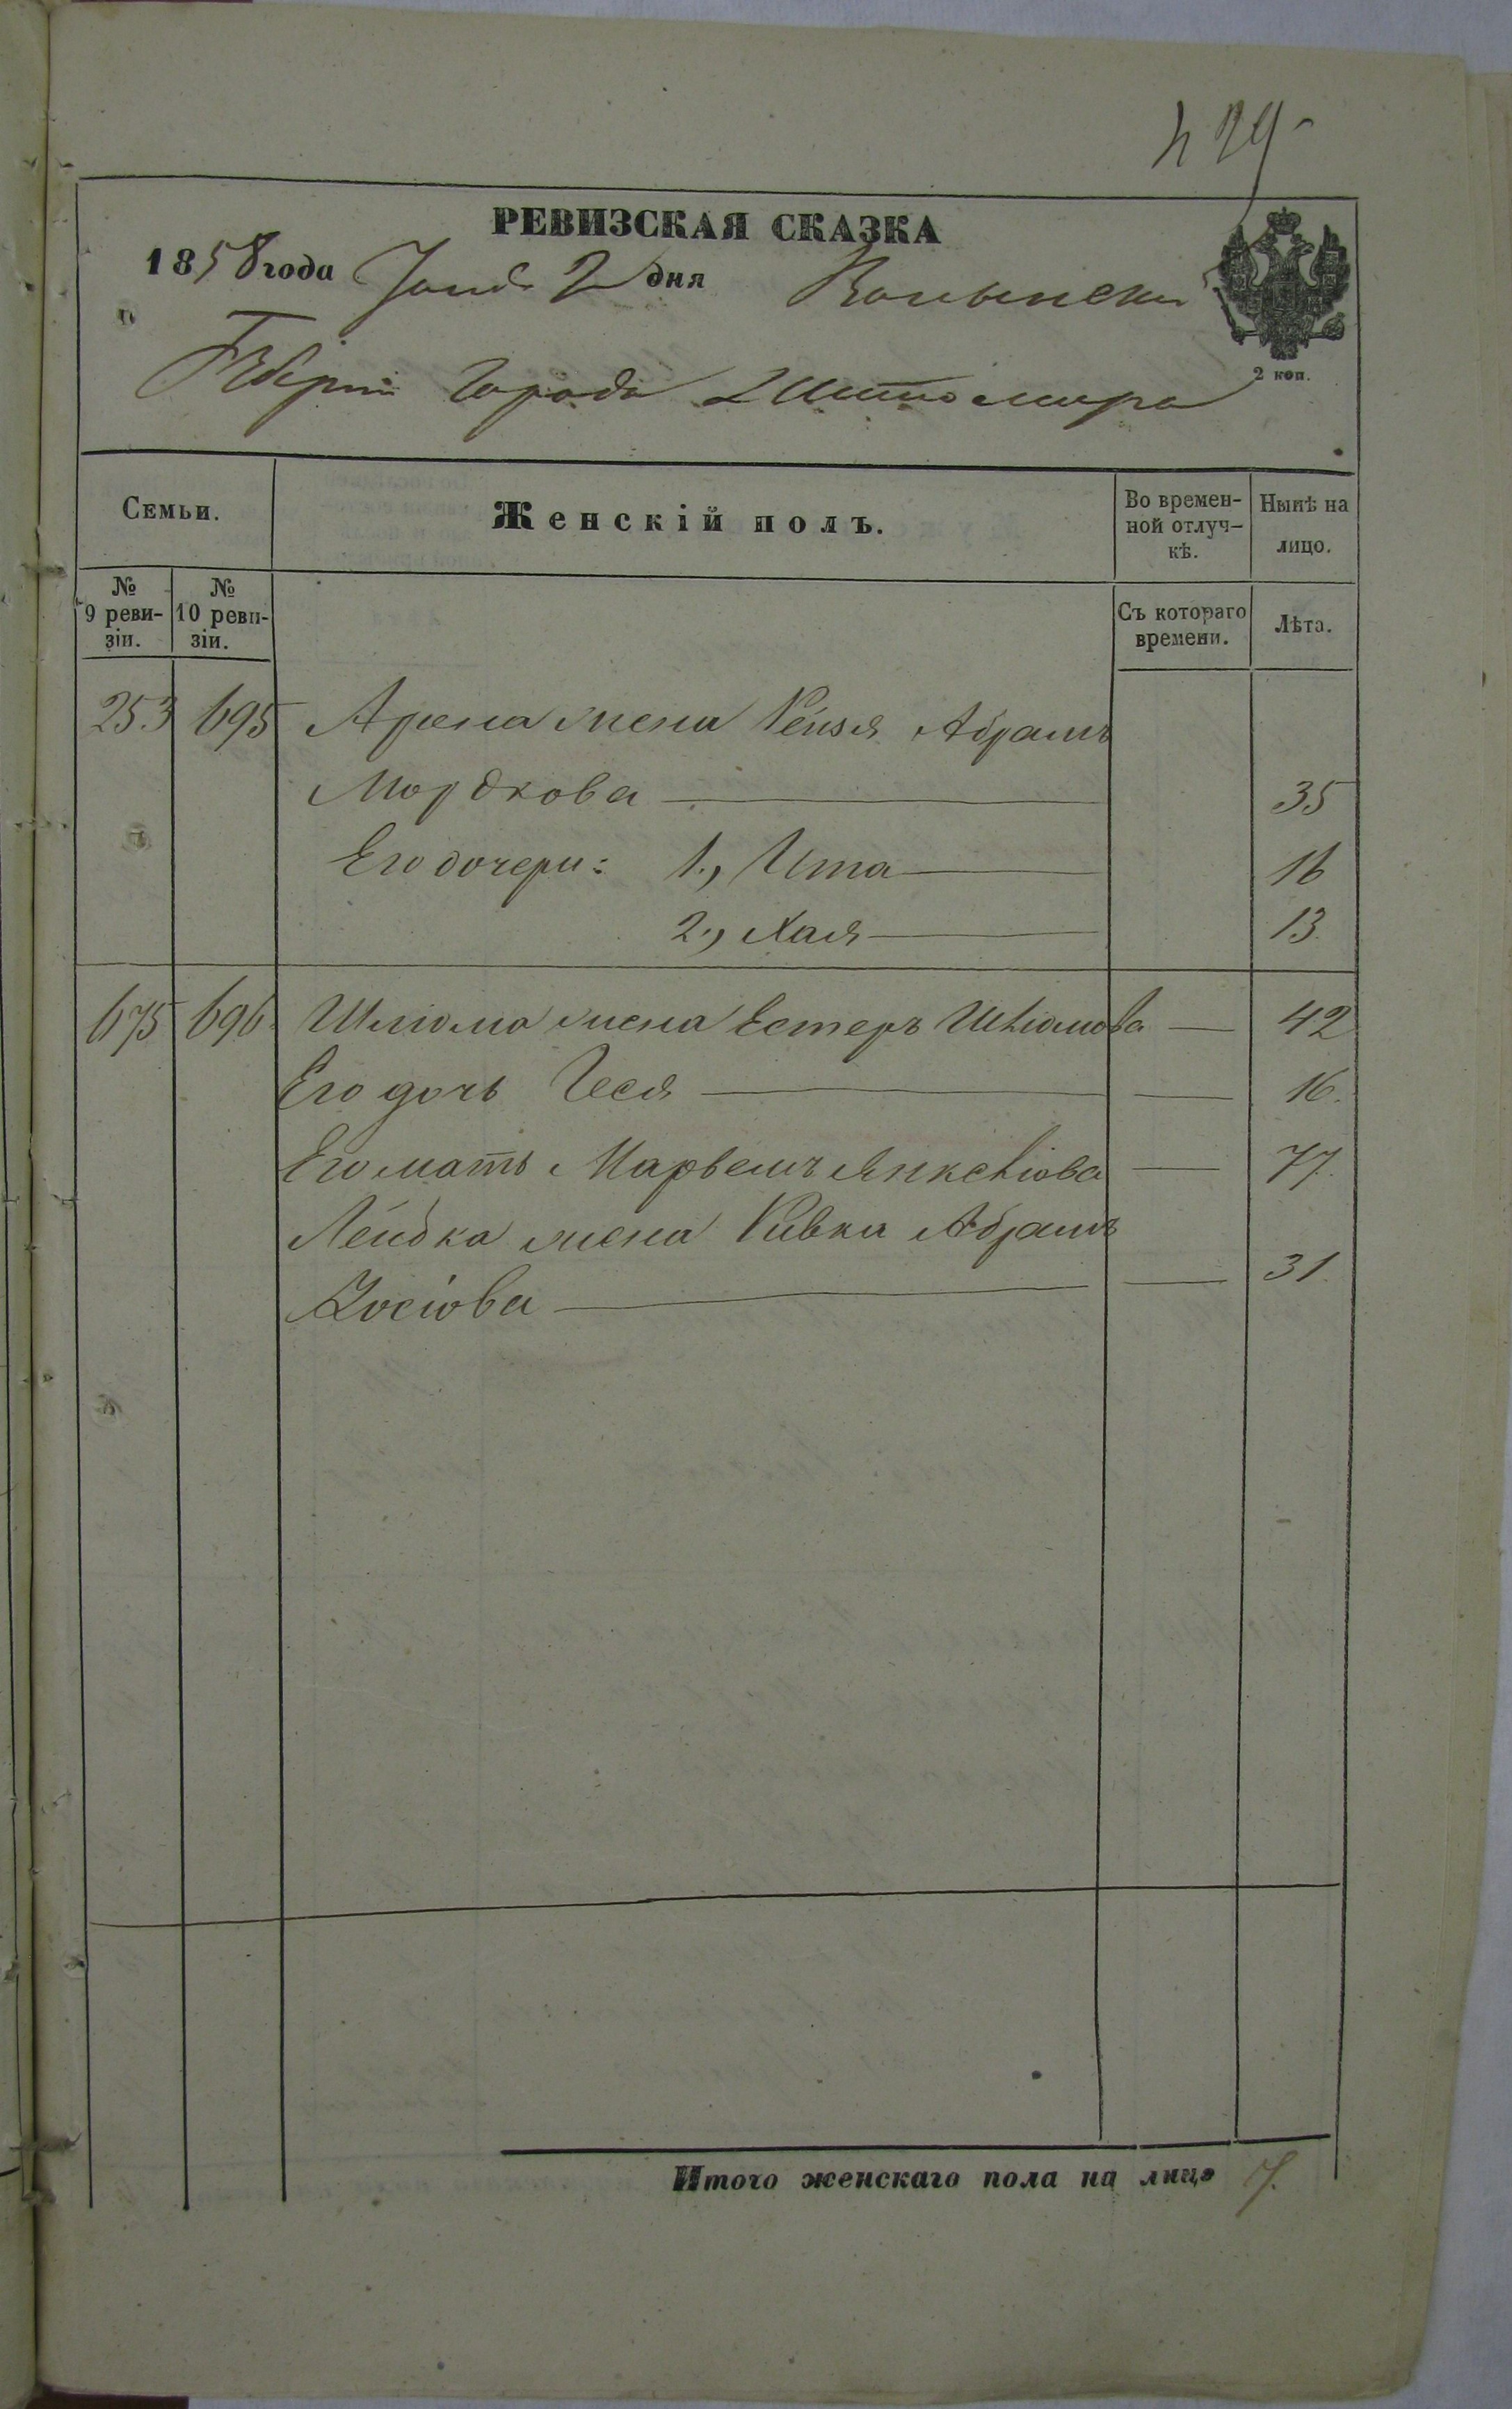 429
РЕВИЗСКАЯ СКАЗКА
1858 года Іюня 2 дня Волынской
Губерніи Города Житомира
2 коп.
Семьи.
Женскій полъ.
Во времен-
ной отлуч-
кѣ.
Нынѣ на
лицо.
№
9 реви-
зіи.
№
10 реви-
зіи.
Съ котораго
времени.
Лѣта.
253 695 Арона жена Рейзя Абрамъ
Мордкова 35
Его дочери: 1., Ита 16
2., Хая 13
675 696 Шлiома жена Естеръ Шлiомова 42
Его дочь Песя 16.
Его мать Янкелiова 77.
Лейбка жена Ривка Абрамъ
Iосiова 31.
Итого женскаго пола на лицо 7.